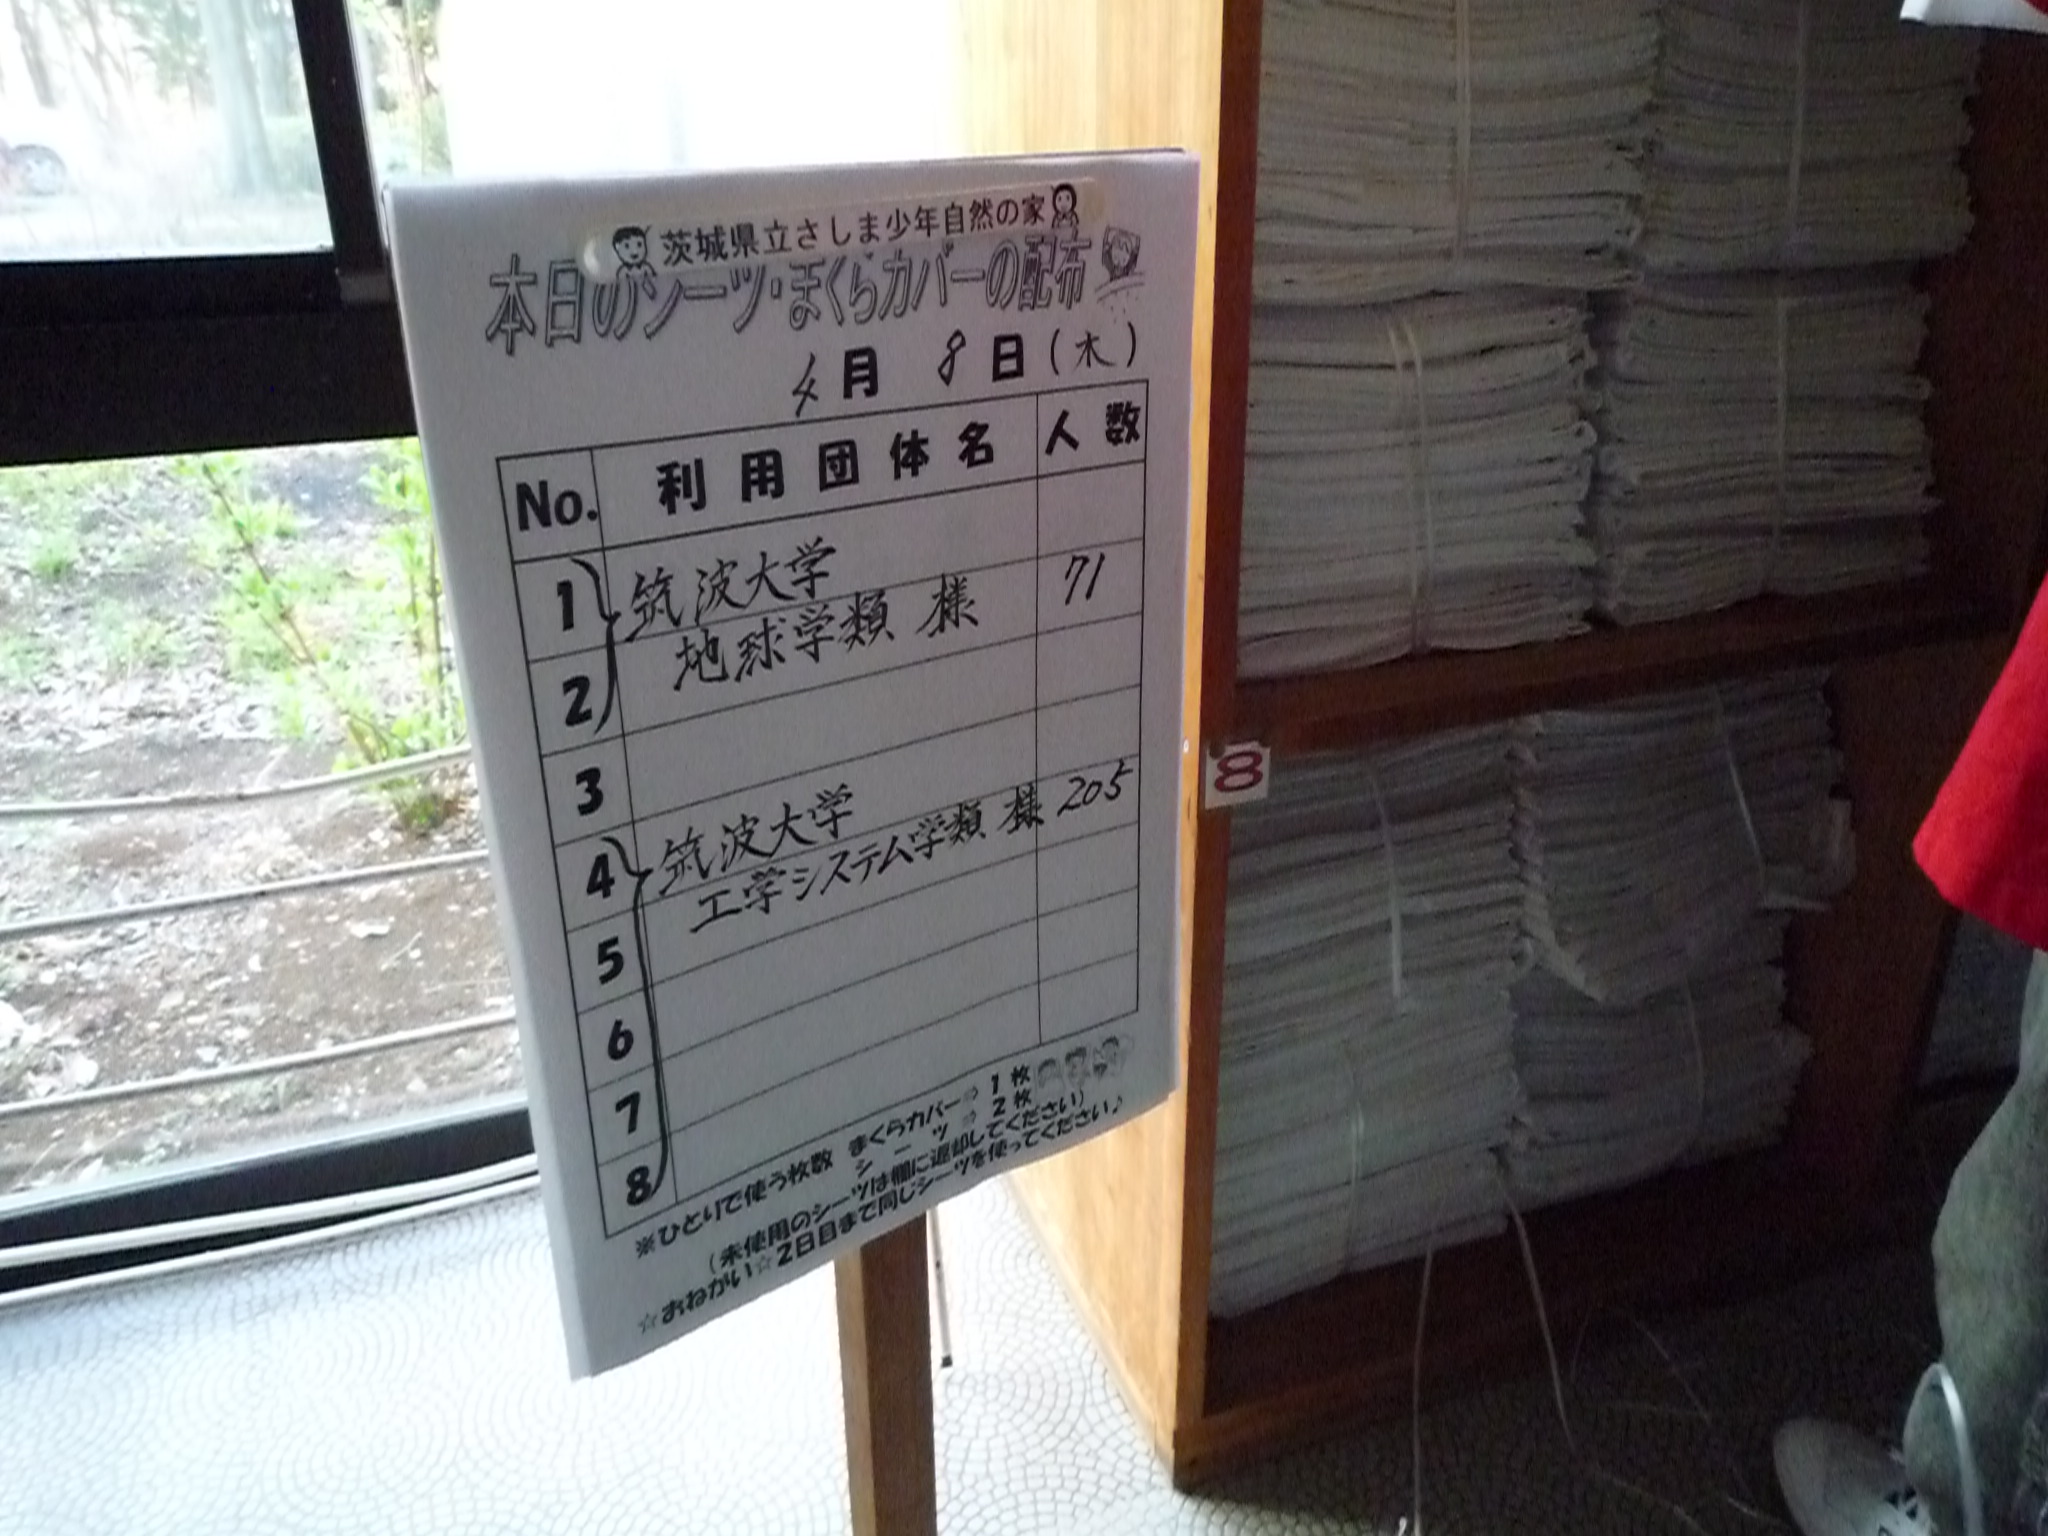 茨城県立さしま少年自然の家
本日のシーツ・まくらカバーの配布
4月 8日(木)
No. 利用団体名 人数
1 筑波大学 71
2 地球学類 様
3
4 筑波大学 205
5 工学システム学類 様
6
7
8
※ひとりで使う枚数 まくらカバー⇨1枚
シーツ⇨2枚
(未使用のシーツは棚に返却してください)
☆おねがい☆2日目まで同じシーツを使ってください♪
8